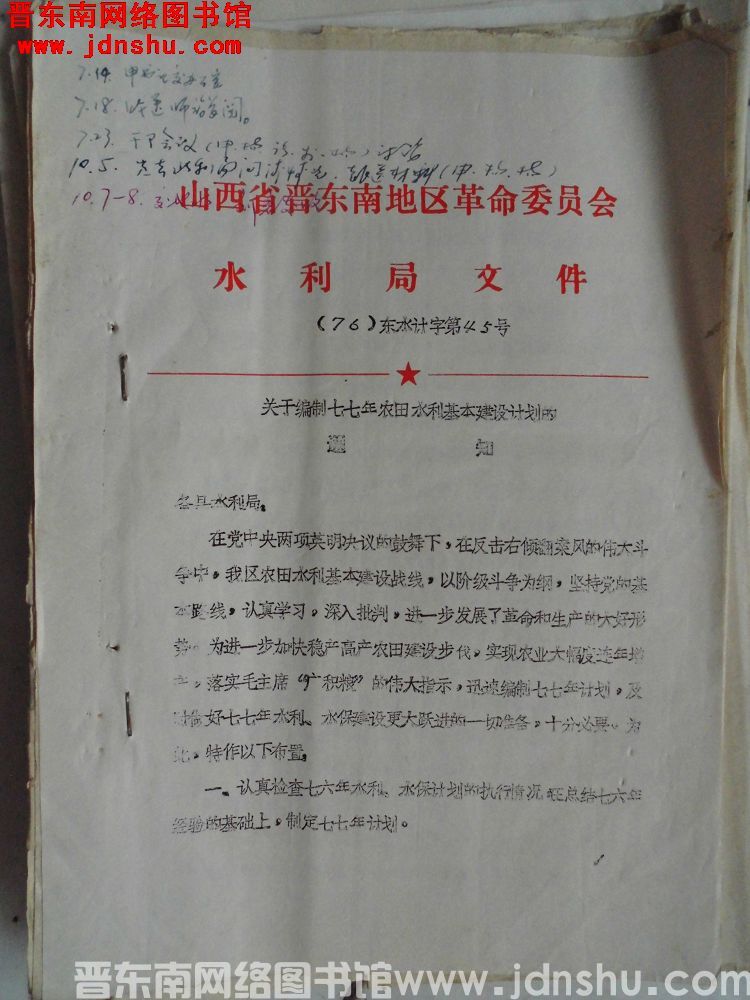 晋东南网络图书馆
www.jdnshu.com
7.14.
7.18.
7.23.
10.5.
10.7-8.
山西省晋东南地区革命委员会
水利局文件
(76)东水计字第45号
关于编制七七年农田水利基本建设计划的
通知
各县水利局。
在党中央两项英明决议的鼓舞下,在反击右倾翻案风的伟大斗
争中,我区农田水利基本建设战线,以阶级斗争为纲,坚持党的基
本路线,认真学习,深入批判,进一步发展了革命和生产的大好形
势。为进一步加快稳产高产农田建设步伐,实现农业大幅度连年增
产,落实毛主席“广积粮”的伟大指示,迅速编制七七年计划,及
时做好七七年水利、水保建设更大跃进的一切准备,十分必要。为
此,特作以下布置。
一、认真检查七六年水利、水保计划的执行情况,在总结七六年
经验的基础上,制定七七年计划。
晋东南网络图书馆www.jdnshu.com